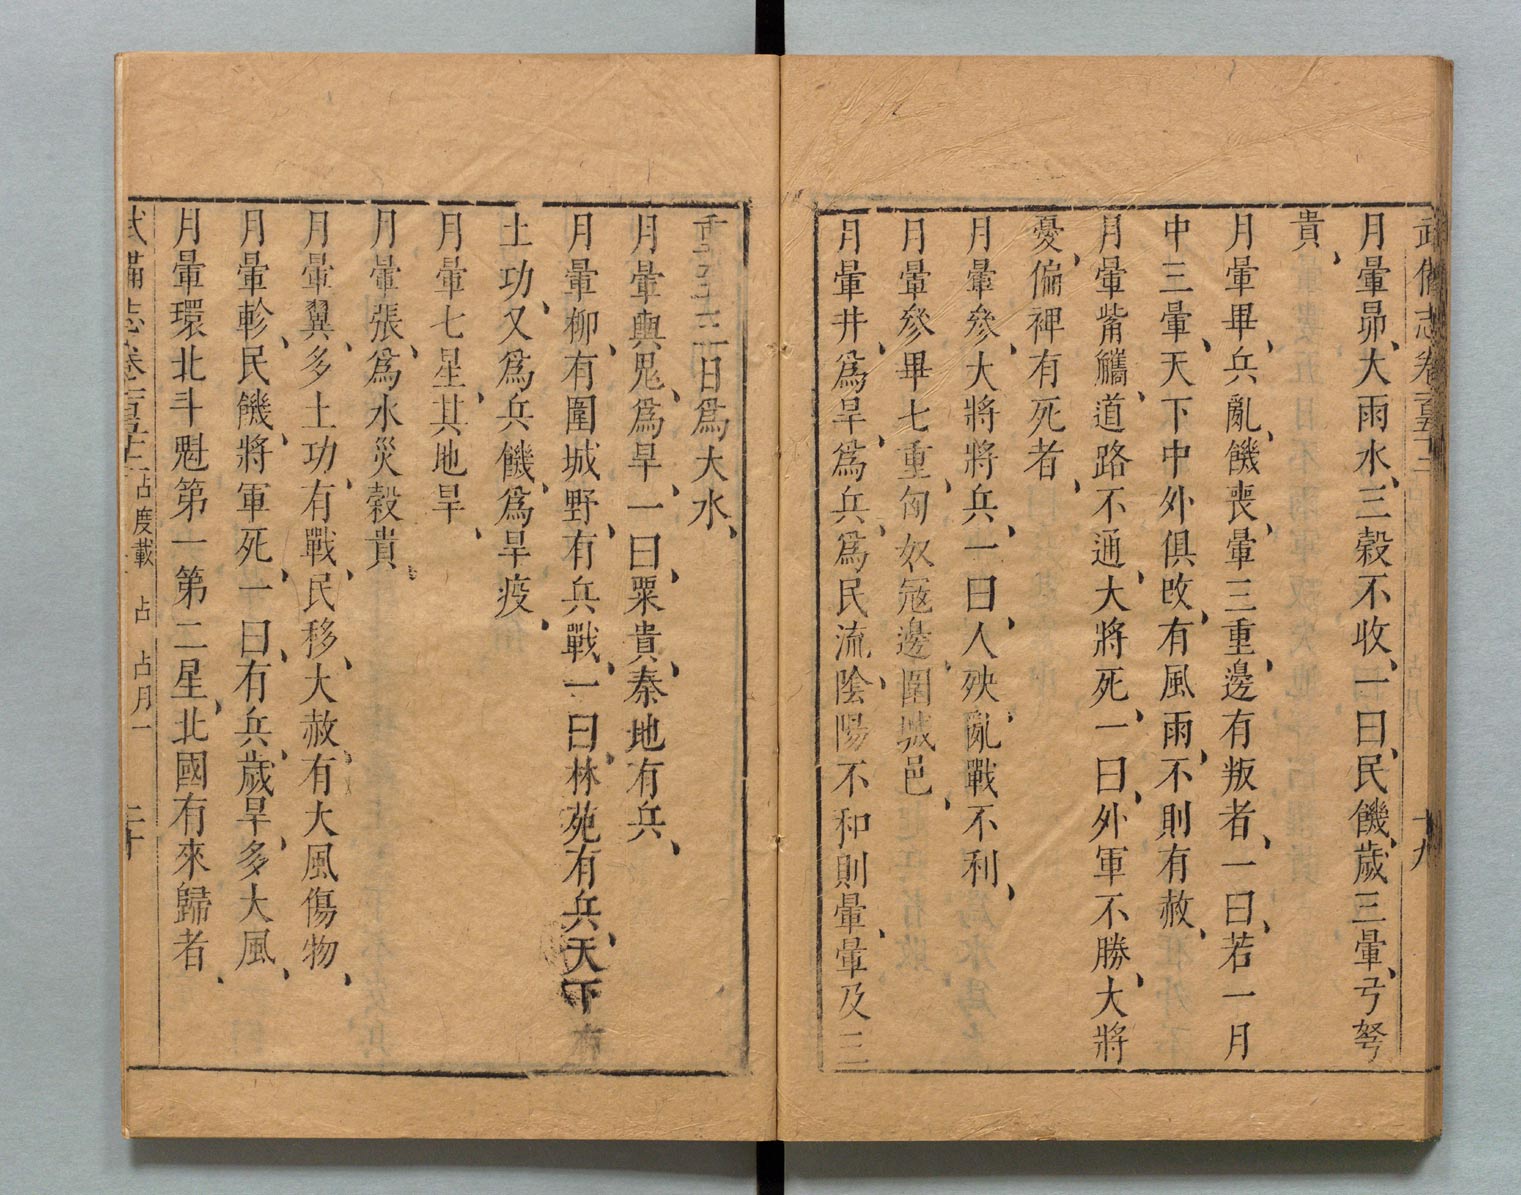 武備志卷一百五十二 占度載 占 占月一 十九
月暈昴、大雨水、三穀不收、一曰、民饑、歲三暈、弓弩
貴、
月暈畢、兵亂、饑喪、暈三重、邊有叛者、一曰、若一月
中三暈、天下中外俱改、有風雨、不則有赦、
月暈觜觿、道路不通、大將死、一曰、外軍不勝、大將
憂、偏裨有死者、
月暈參、大將將兵、一曰、人殃、亂戰不利、
月暈參畢七重、匈奴冦邊、圍城邑、
月暈井、爲旱、爲兵、爲民流、陰陽不和則暈、暈及三
重、三日爲大水、
月暈輿鬼、爲旱、一曰、粟貴、秦地有兵、
月暈柳、有圍城、野有兵戰、一曰、林苑有兵、天下有
土功、又爲兵饑、爲旱疫、
月暈七星、其地旱、
月暈張、爲水災、穀貴、
月暈翼、多土功、有戰、民移、大赦、有大風傷物、
月暈軫、民饑、將軍死、一曰、有兵、歲旱、多大風、
月暈環北斗魁第一第二星、北國有來歸者、
武備志卷一百五十二 占度載 占 占月一 二十